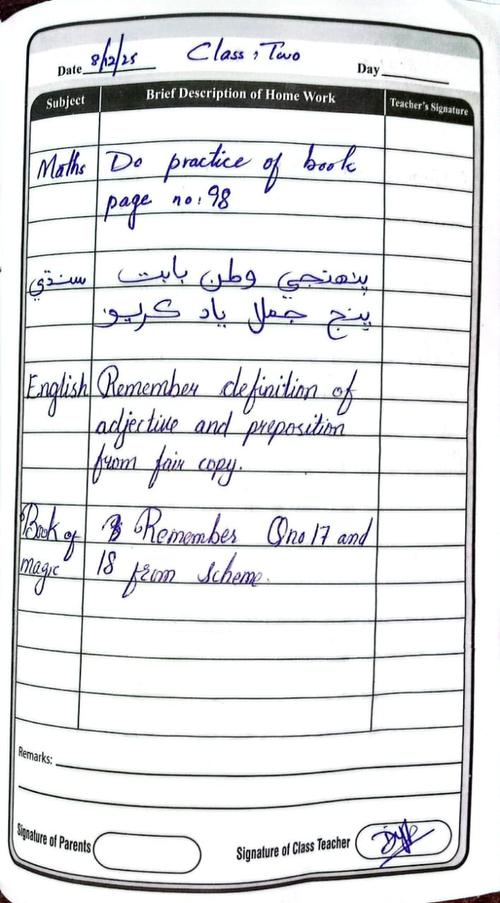 Date 8/12/25 Class, Two Day
Subject Brief Description of Home Work Teacher's Signature
Maths Do practice of book
page no: 98
سنڌي پنهنجي وطن بابت
پنج جملا ياد ڪريو
English Remember definition of
adjective and preposition
from fair copy.
Book of Remember Qno 17 and
magic 18 from scheme.
Remarks:
Signature of Parents Signature of Class Teacher